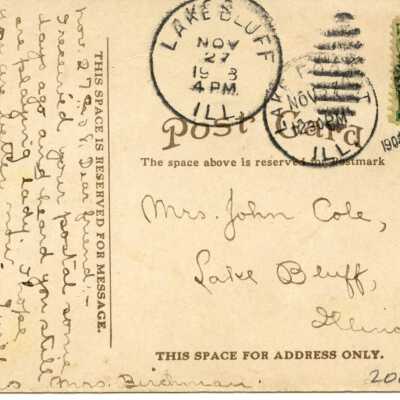 LAKE BLUFF
NOV
27
4 PM
ILL.
NOV
12-30PM
ILL.
Post Card
The space above is reserved for postmark
THIS SPACE IS RESERVED FOR MESSAGE.
Nov. 27
Dear friend:-
I received your postal some
days ago and heard you still
are playing lady. I hope
you are better now.
Mrs. Birdman.
Mrs. John Cole,
Lake Bluff,
Illino
THIS SPACE FOR ADDRESS ONLY.